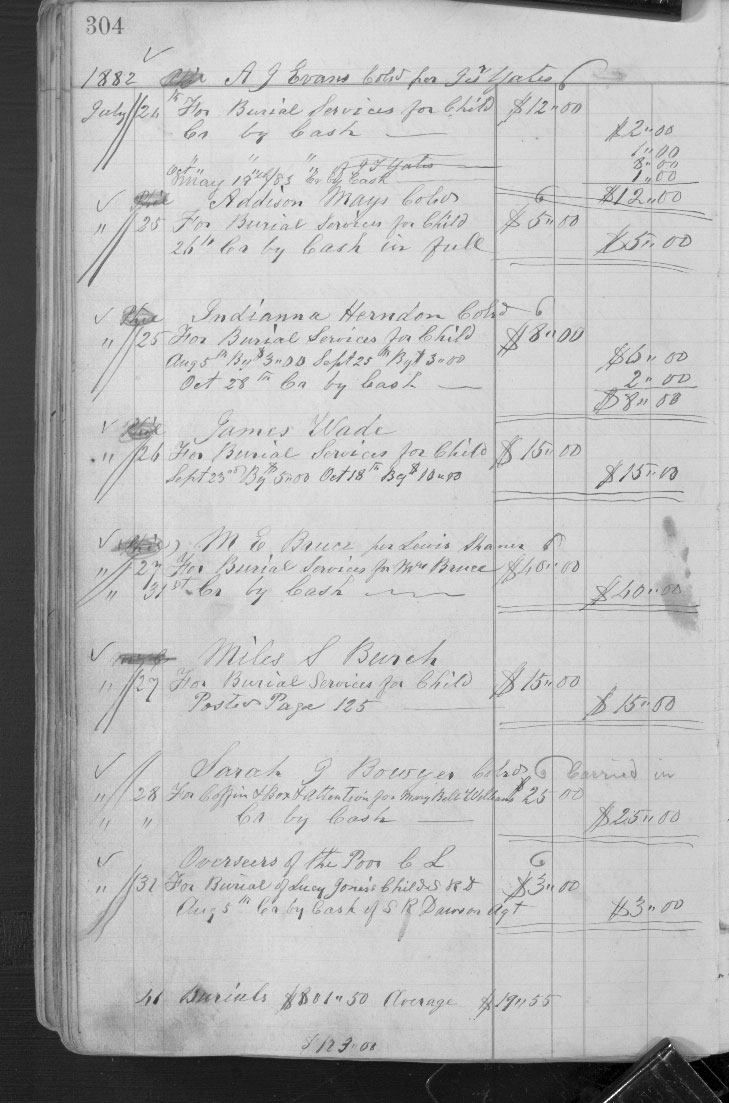 304
1882 A J Evans Cold per Jsr Yates 6
July 24th For Burial Services for Child $12"00
Cr by Cash $2"00
1"00
Oct " " " of J T Yates 8"00
May 19th/83 Cr by Cash 1"00
Addison Mays Cold 6 $12"00
" 25 For Burial Services for Child $5"00
26th Cr by Cash in full $5"00
Indianna Herndon Cold 6
" 25 For Burial Services for Child $8"00
Aug 5th By $3"00 Sept 25th By $3"00 $6"00
Oct 28th Cr by Cash 2"00
$8"00
James Wade
" 26 For Burial Services for Child $15"00
Sept 23rd By $5"00 Oct 18th By $10"00 $15"00
M E Bruce per Lewis Shaner 6
" 27 For Burial Services for Mrs Bruce $40"00
" 31st Cr by Cash $40"00
Miles S Burch
" 27 For Burial Services for Child $15"00
Posted Page 125 $15"00
Sarah J Bowyer Cold 6 Carried in
" 28 For Coffin & Box & Attention for Mary Bell Williams $25"00
" " Cr by Cash $25"00
Overseers of the Poor C L 6
" 31 For Burial of Lucy Jones Child S R D $3"00
Aug 5th Cr by Cash of S R Dawson Agt $3"00
41 Burials $801"50 Average $19"55
$123"00